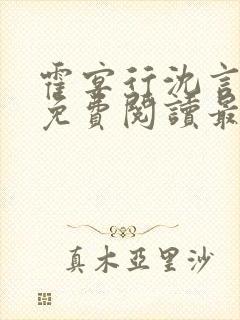 霍宴行沈言
免費閱讀最
真木亞里沙